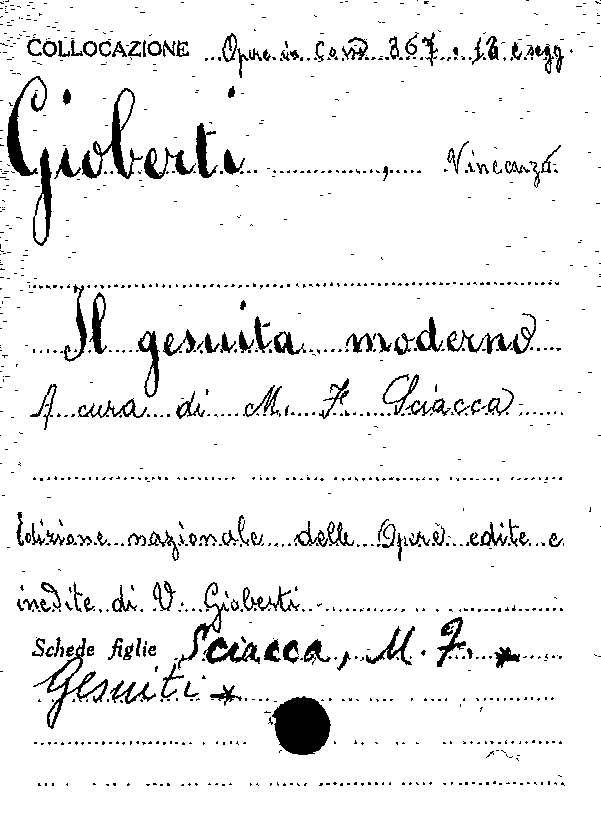 COLLOCAZIONE Opere in Cons 367. 13 e segg.
Gioberti, Vincenzo
Il gesuita moderno
A cura di M. F. Sciacca
Edizione nazionale delle Opere edite e
inedite di V. Gioberti
Schede figlie Sciacca, M. F. *
Gesuiti *